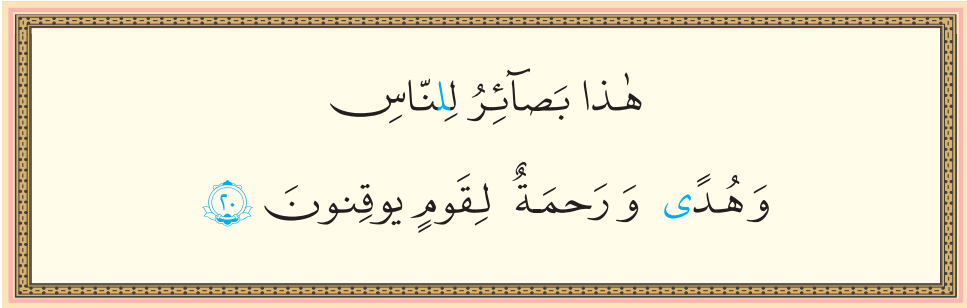 هٰذا بَصآئِرُ لِلنّاسِ
وَ هُدًى وَ رَحمَةٌ لِقَومٍ يوقِنونَ ٢٠